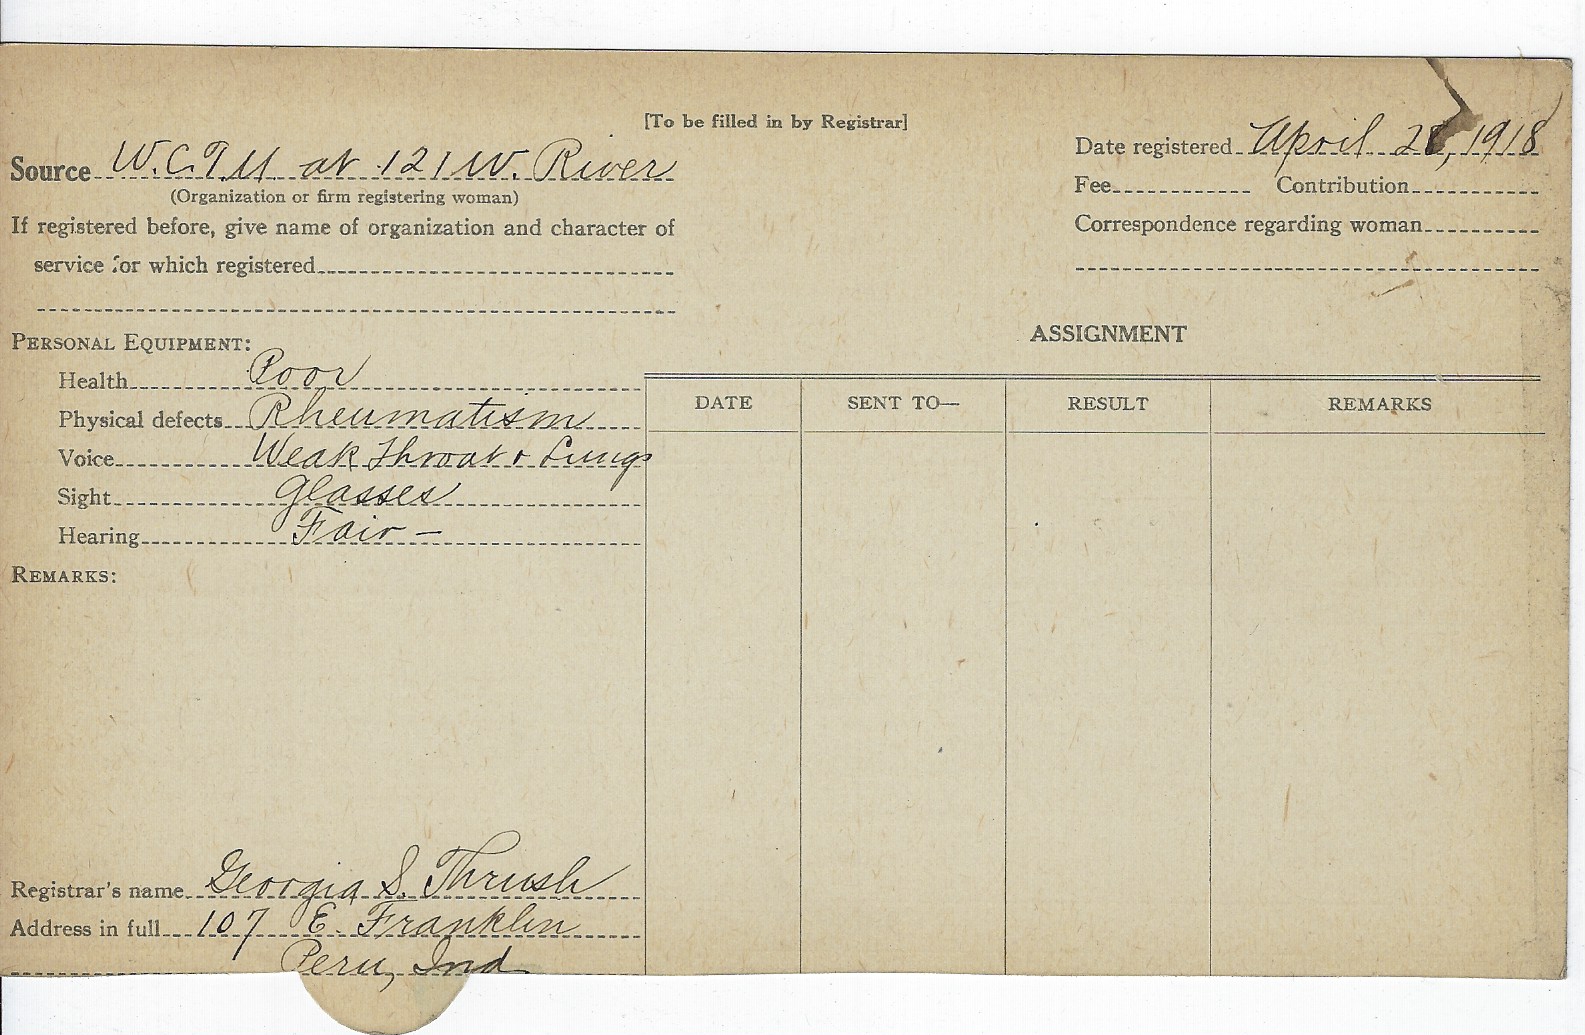 [To be filled in by Registrar]
Source W.C.T.U at 121 W. River
(Organization or firm registering woman)
If registered before, give name of organization and character of
service for which registered
Date registered April 28, 1918
Fee Contribution
Correspondence regarding woman
PERSONAL EQUIPMENT:
Health Poor
Physical defects Rheumatism
Voice Weak Throat & Lungs
Sight Glasses
Hearing Fair —
REMARKS:
ASSIGNMENT
DATE SENT TO— RESULT REMARKS
Registrar's name Georgia S. Thrush
Address in full 107 E. Franklin
Peru, Ind